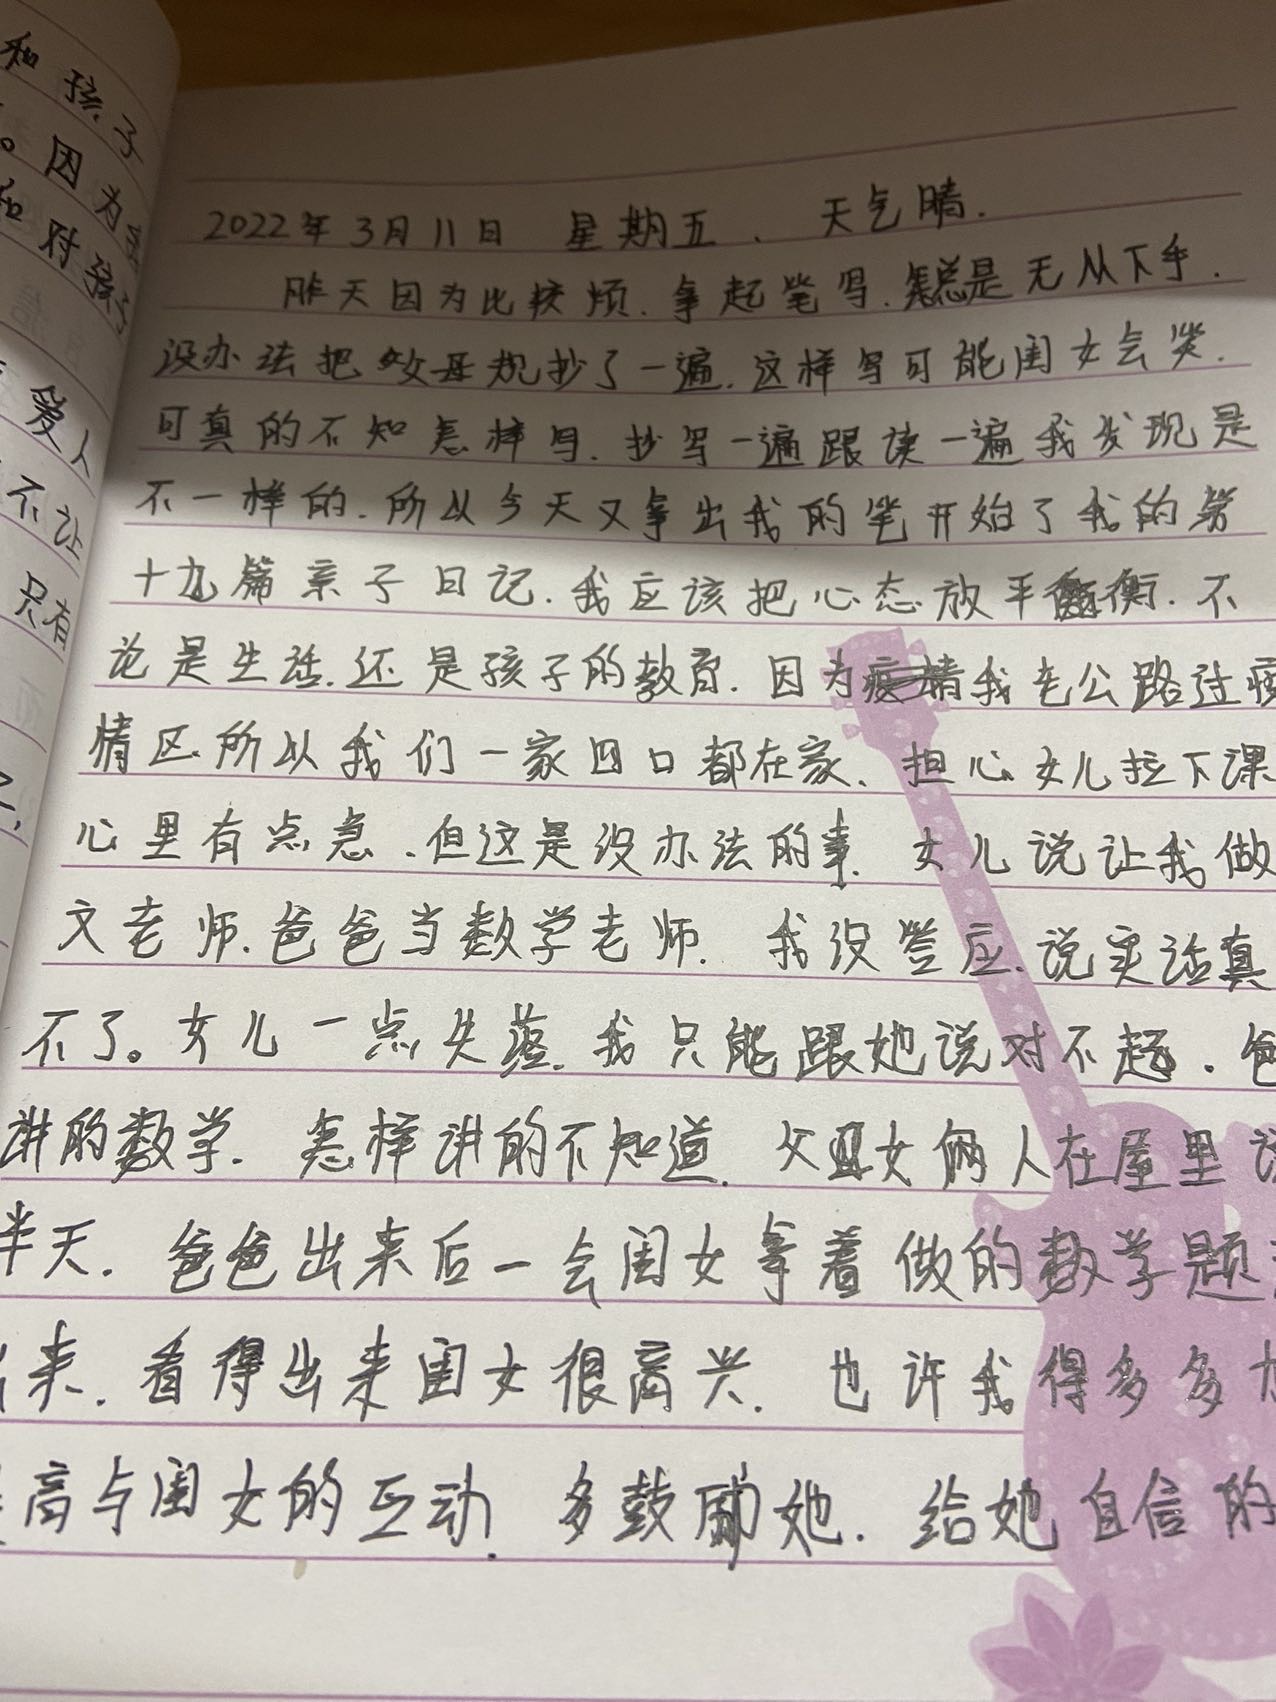 和孩子
。因为
和对孩子
爱人
不让
只有
2022年3月11日 星期五. 天气晴.
昨天因为比较烦.拿起笔写.总是无从下手.
没办法把父母规抄了一遍.这样写可能闺女会笑.
可真的不知怎样写.抄写一遍跟读一遍我发现是
不一样的.所以今天又拿出我的笔开始了我的第
十九篇亲子日记.我应该把心态放平衡.不
论是生活.还是孩子的教育.因为我老公路过疫
情区.所以我们一家四口都在家、担心女儿拉下课
心里有点急、但这是没办法的事.女儿说让我做
文老师.爸爸当数学老师.我没答应.说实话真
不了。女儿一点失落.我只能跟她说对不起.爸
讲的数学.怎样讲的不知道.父女俩人在屋里
半天.爸爸出来后一会闺女拿着做的数学题
来.看得出来闺女很高兴.也许我得多多
高与闺女的互动.多鼓励她.给她自信的